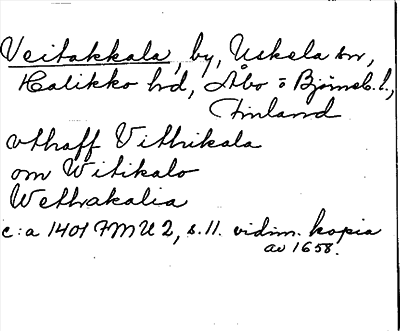 Veitakkala, by, Uskela sn,
Halikko hd, Åbo o Björneb. l.,
Finland
vthaff Vithikala
om Witikalo
Wethakalia
c:a 1401 FMU 2, s. 11. vidim. kopia
av 1658.